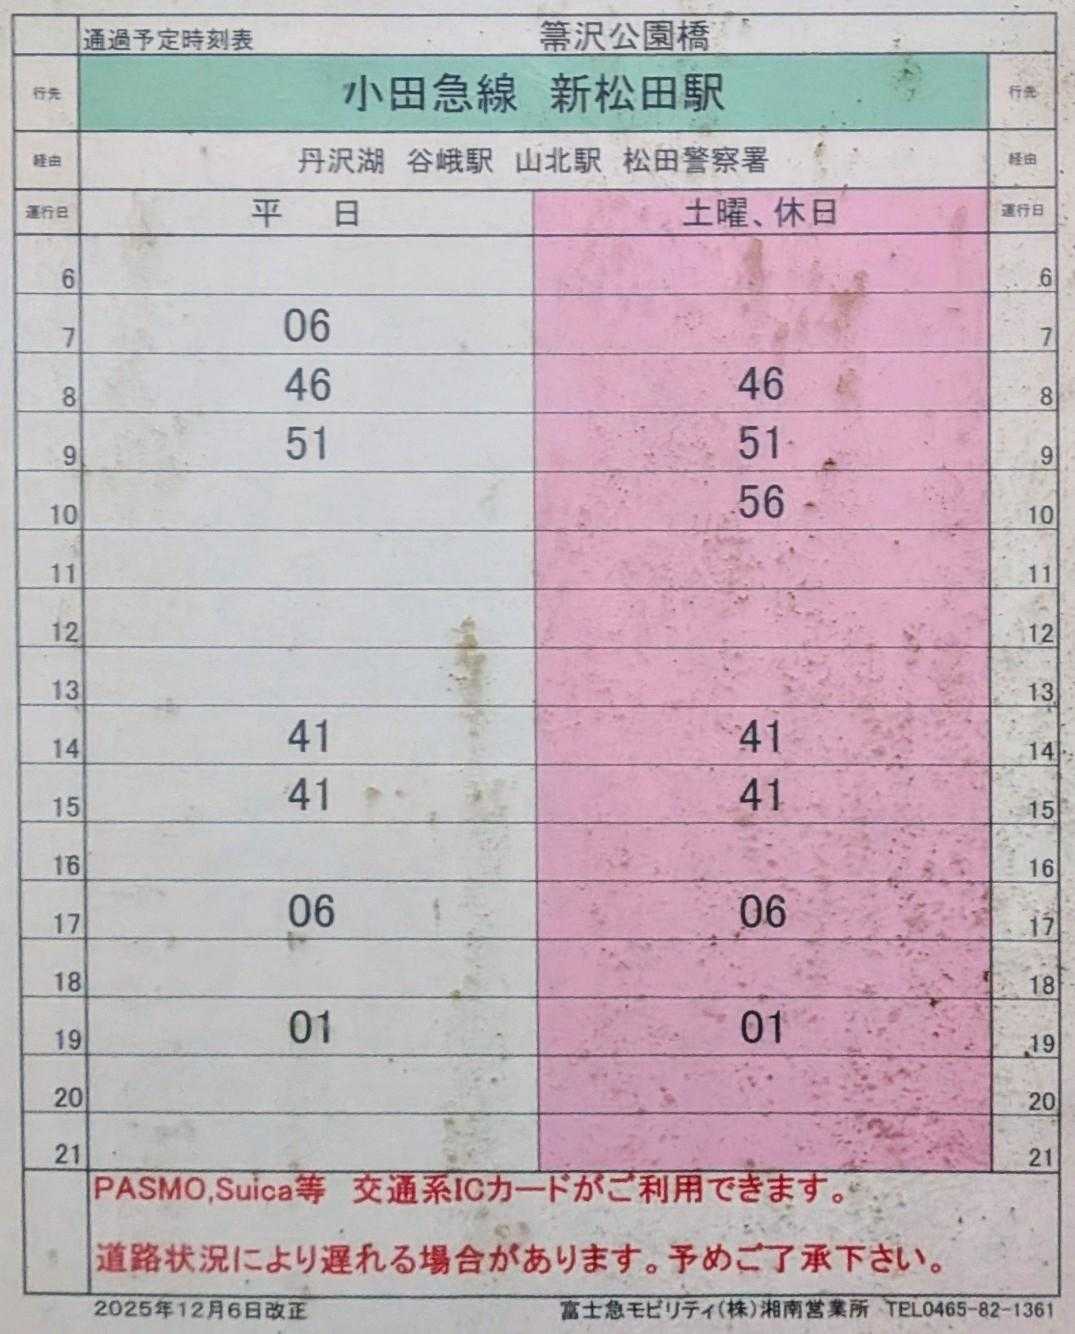 通過予定時刻表 箒沢公園橋
行先 小田急線 新松田駅 行先
経由 丹沢湖 谷峨駅 山北駅 松田警察署 経由
運行日 平 日 土曜、休日 運行日
6 6
7 06 7
8 46 46 8
9 51 51 9
10 56 10
11 11
12 12
13 13
14 41 41 14
15 41 41 15
16 16
17 06 06 17
18 18
19 01 01 19
20 20
21 21
PASMO,Suica等 交通系ICカードがご利用できます。
道路状況により遅れる場合があります。予めご了承下さい。
2025年12月6日改正 富士急モビリティ(株)湘南営業所 TEL0465-82-1361